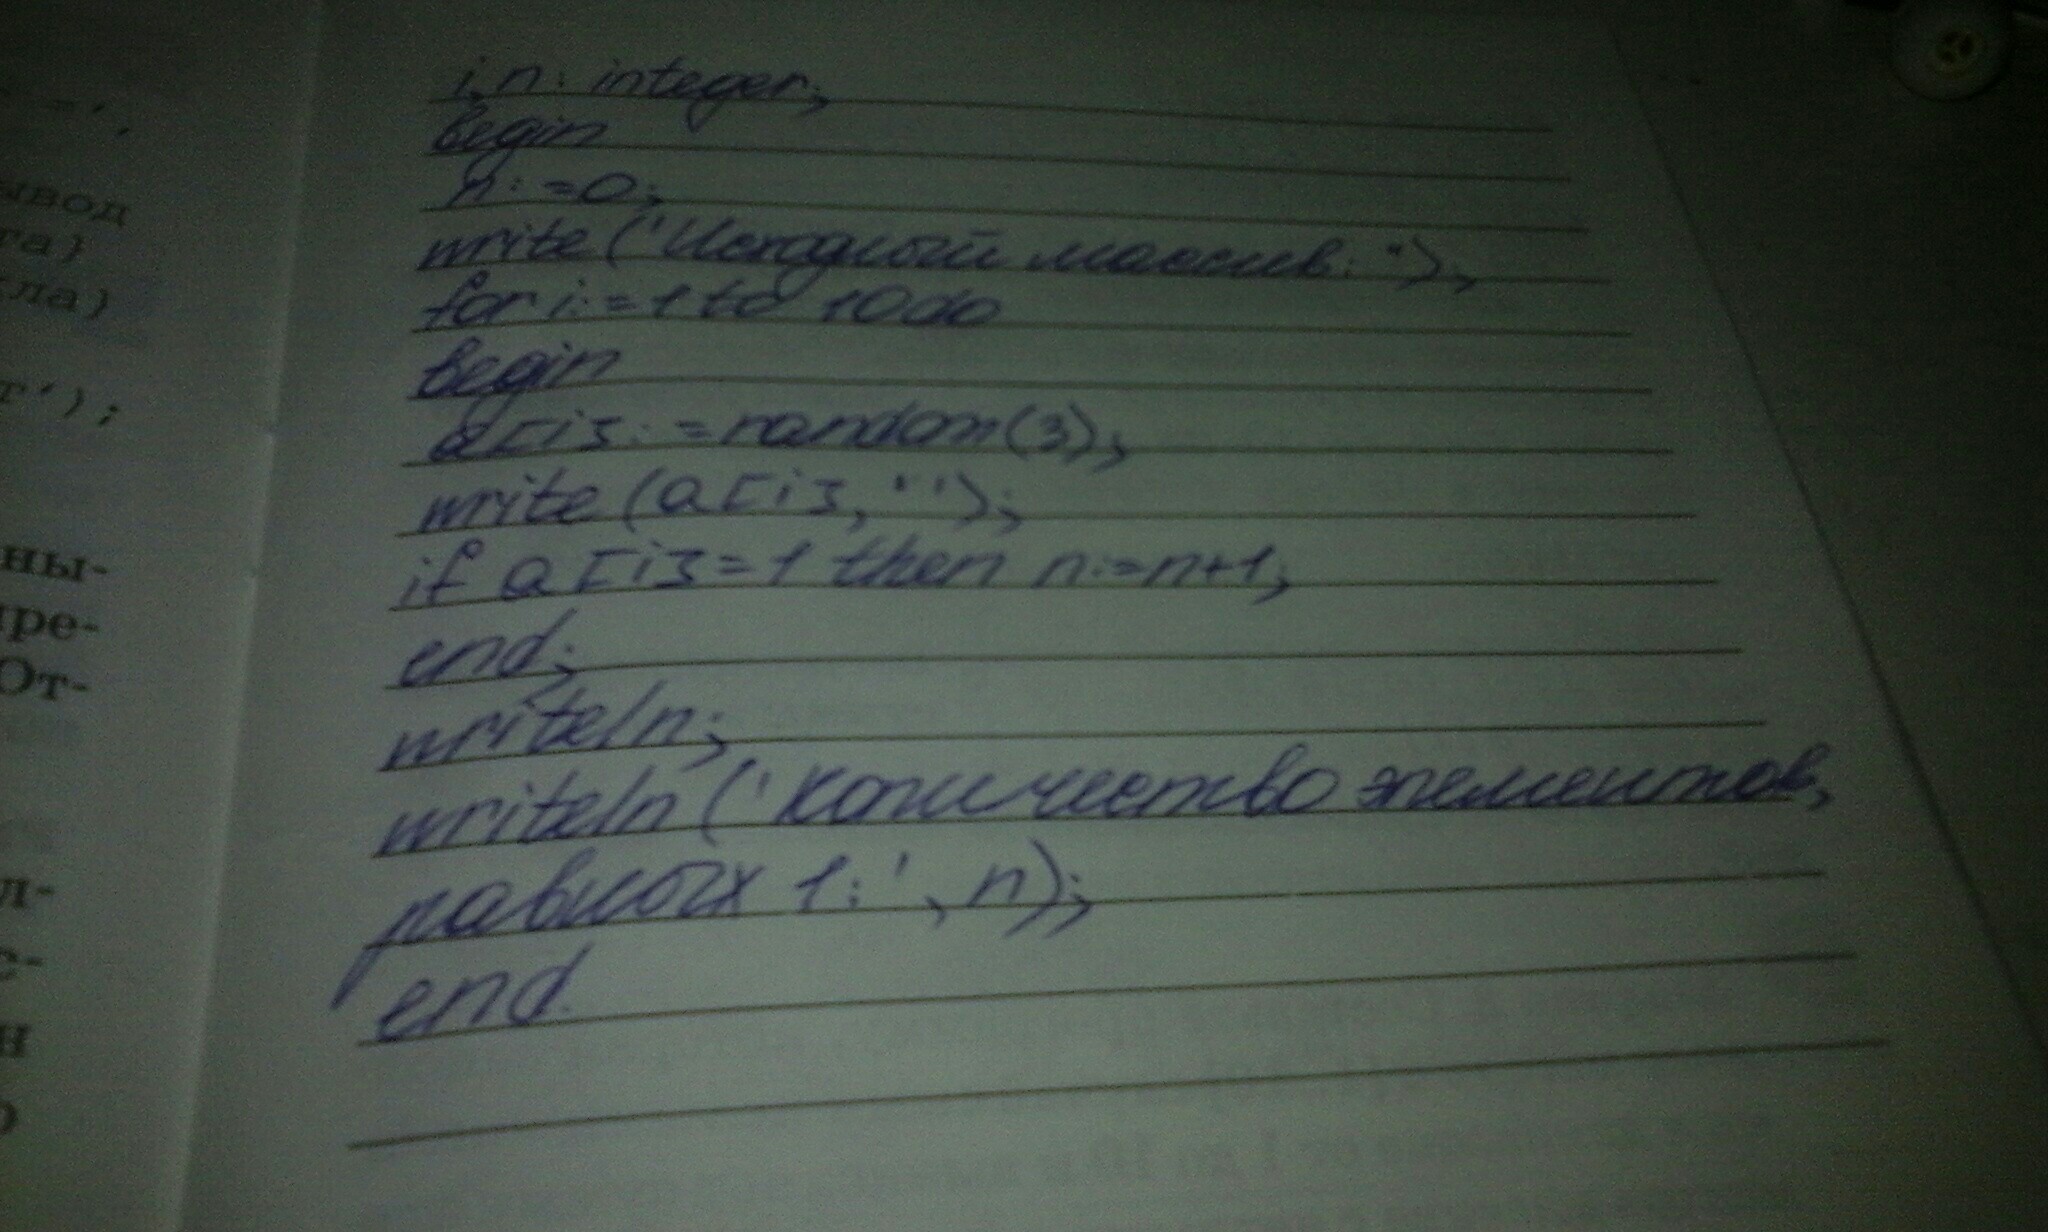 =',
ывод
та}
кла}
т');
ны-
пре-
От-
л-
с-
н
о
i,n: integer;
begin
n:=0;
write('Исходный массив: ');
for i:=1 to 10 do
begin
a[i]:=random(3);
write(a[i],' ');
if a[i]=1 then n:=n+1;
end;
writeln;
writeln('Количество элементов,
равных 1:', n);
end.